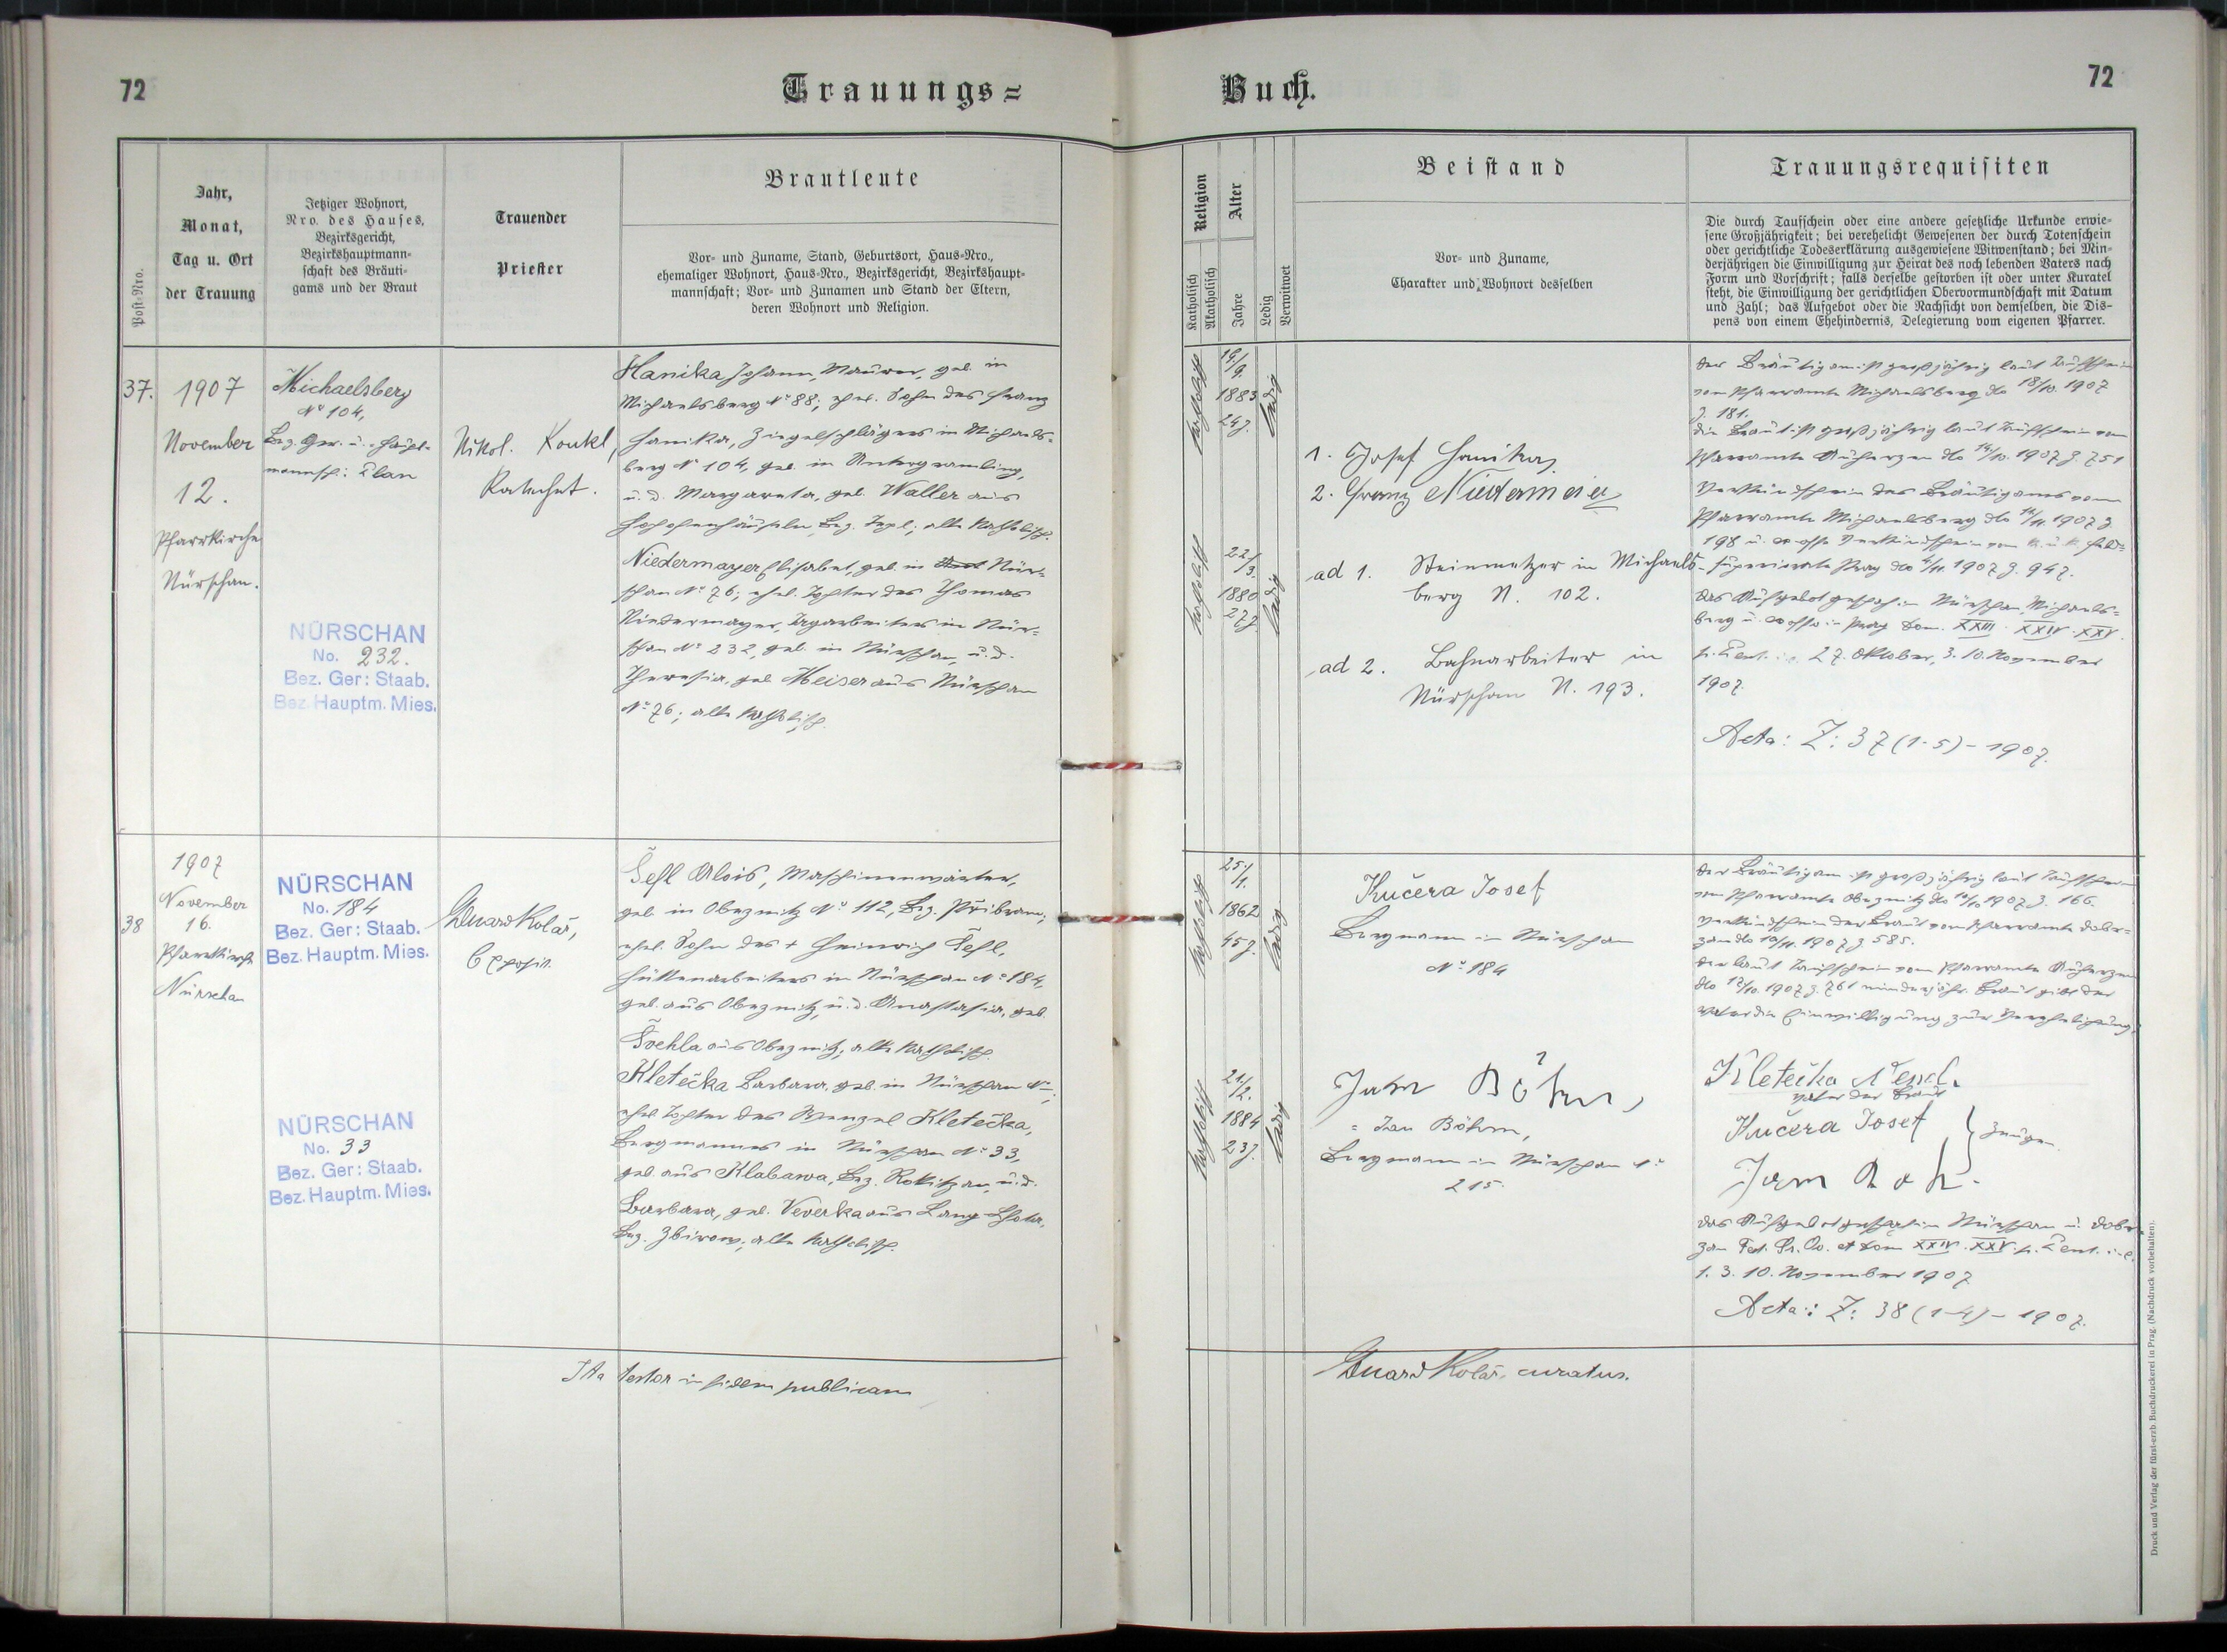 72
Trauungs=
Buch.
72
Post-Nro.
Jahr,
Monat,
Tag u. Ort
der Trauung
Jetziger Wohnort,
Nro. des Hauses,
Bezirksgericht,
Bezirkshauptmann-
schaft des Bräuti-
gams und der Braut
Trauender
Priester
Brautleute
Vor- und Zuname, Stand, Geburtsort, Haus-Nro.,
ehemaliger Wohnort, Haus-Nro., Bezirksgericht, Bezirkshaupt-
mannschaft; Vor- und Zunamen und Stand der Eltern,
deren Wohnort und Religion.
Religion
Katholisch
Akatholisch
Alter
Jahre
Ledig
Verwitwet
Beistand
Vor- und Zuname,
Charakter und Wohnort desselben
Trauungsrequisiten
Die durch Taufschein oder eine andere gesetzliche Urkunde erwie-
sene Großjährigkeit; bei verehelicht Gewesenen der durch Totenschein
oder gerichtliche Todeserklärung ausgewiesene Witwenstand; bei Min-
derjährigen die Einwilligung zur Heirat des noch lebenden Vaters nach
Form und Vorschrift; falls derselbe gestorben ist oder unter Kuratel
steht, die Einwilligung der gerichtlichen Obervormundschaft mit Datum
und Zahl; das Aufgebot oder die Nachsicht von demselben, die Dis-
pens von einem Ehehindernis, Delegierung vom eigenen Pfarrer.
37.
1907
November
12.
Pfarrkirche
Nürschan.
Michaelsberg
No 104,
Bez. Ger. u. Haupt-
mannsch: Plan
NÜRSCHAN
No. 232.
Bez. Ger: Staab.
Bez. Hauptm. Mies.
Nikol. Koukl,
Katechet.
Hanika Johann, Maurer, geb. in
Michaelsberg No 88; ehel. Sohn des Franz
Hanika, Ziegelschlägers in Michaels-
berg No 104, geb. in Untergramling,
u. d. Margareta, geb. Waller aus
Hohofenhäuseln, Bez. Tepl; alle katholisch.
Niedermayer Elisabet, geb. in Nür-
schan No 76; ehel. Tochter des Thomas
Niedermayer, Tagarbeiters in Nür-
schan No 232, geb. in Nürschan, u. d.
Theresia, geb. Meiser aus Nürschan
No 76; alle katholisch.
katholisch
19./9.
1883
24 J.
ledig
katholisch
22/3.
1880
27 J.
ledig
1. Josef Hanika
2. Franz Niedermeier
ad 1. Steinmetzer in Michaels-
berg N. 102.
ad 2. Bahnarbeiter in
Nürschan N. 193.
Der Bräutigam ist großjährig laut Taufschein
vom Pfarramte Michaelsberg dto 18/10. 1907
Z. 181.
Die Braut ist großjährig laut Taufschein vom
Pfarramte Auherzen dto 14/10. 1907 Z. 751
Verkündschein des Bräutigams vom
Pfarramte Michaelsberg dto 1907 Z.
198 u. Verkündschein vom k. u. k. Feld-
superiorate Prag dto 1907 Z. 947.
Das Aufgebot geschah in Nürschan, Michaels-
berg u. in Prag Dom. XXIII. XXIV. XXV.
p. Pent. 27. Oktober, 3. 10. November
1907.
Acta: Z: 37 (1-5) - 1907.
38
1907
November
16.
Pfarrkirche
Nürschan
NÜRSCHAN
No. 184
Bez. Ger: Staab.
Bez. Hauptm. Mies.
NÜRSCHAN
No. 33
Bez. Ger: Staab.
Bez. Hauptm. Mies.
Eduard Kolář,
Exposit.
Šefl Alois, Maschinenwärter,
geb. in Obeznitz No 112, Bez. Příbram;
ehel. Sohn des + Heinrich Šefl,
Hüttenarbeiters in Nürschan No 184,
geb. aus Obeznitz, u. d. Anastasia, geb.
Švehla aus Obeznitz; alle katholisch.
Kletečka Barbara, geb. in Nürschan No
ehel. Tochter des Wenzel Kletečka,
Bergmannes in Nürschan No 33,
geb. aus Klabawa, Bez. Rokitzan, u. d.
Barbara, geb. Veverka aus Lang-Lhota,
Bez. Zbirow; alle katholisch.
katholisch
25./1.
1862
45 J.
ledig
katholisch
21./2.
1884
23 J.
ledig
Kučera Josef
Bergmann in Nürschan
No 184
Jan Böhm,
= Jan Böhm,
Bergmann in Nürschan No
215.
Der Bräutigam ist großjährig laut Taufschein
vom Pfarramte Obeznitz dto 1907 Z. 166.
Verkündschein der Braut vom Pfarramte Dober-
zan dto 10/11. 1907 Z 585.
Der laut Taufschein vom Pfarramte Auherzen
dto 12/10. 1907 Z. 761 minderjähr. Braut gibt der
Vater die Einwilligung zur Verehelichung;
Kletečka Vencl.
Vater der Braut
Kučera Josef
Zeugen
Das Aufgebot geschah in Nürschan u. Dober-
zan Fest. Oo. et Dom XXIV. XXV. p. Pent. i. e.
1. 3. 10. November 1907
Acta: Z: 38 (1-4) - 1907.
Ita testor in fidem publicam
Eduard Kolář, curatus.
Druck und Verlag der fürst-erzb. Buchdruckerei in Prag. (Nachdruck vorbehalten).